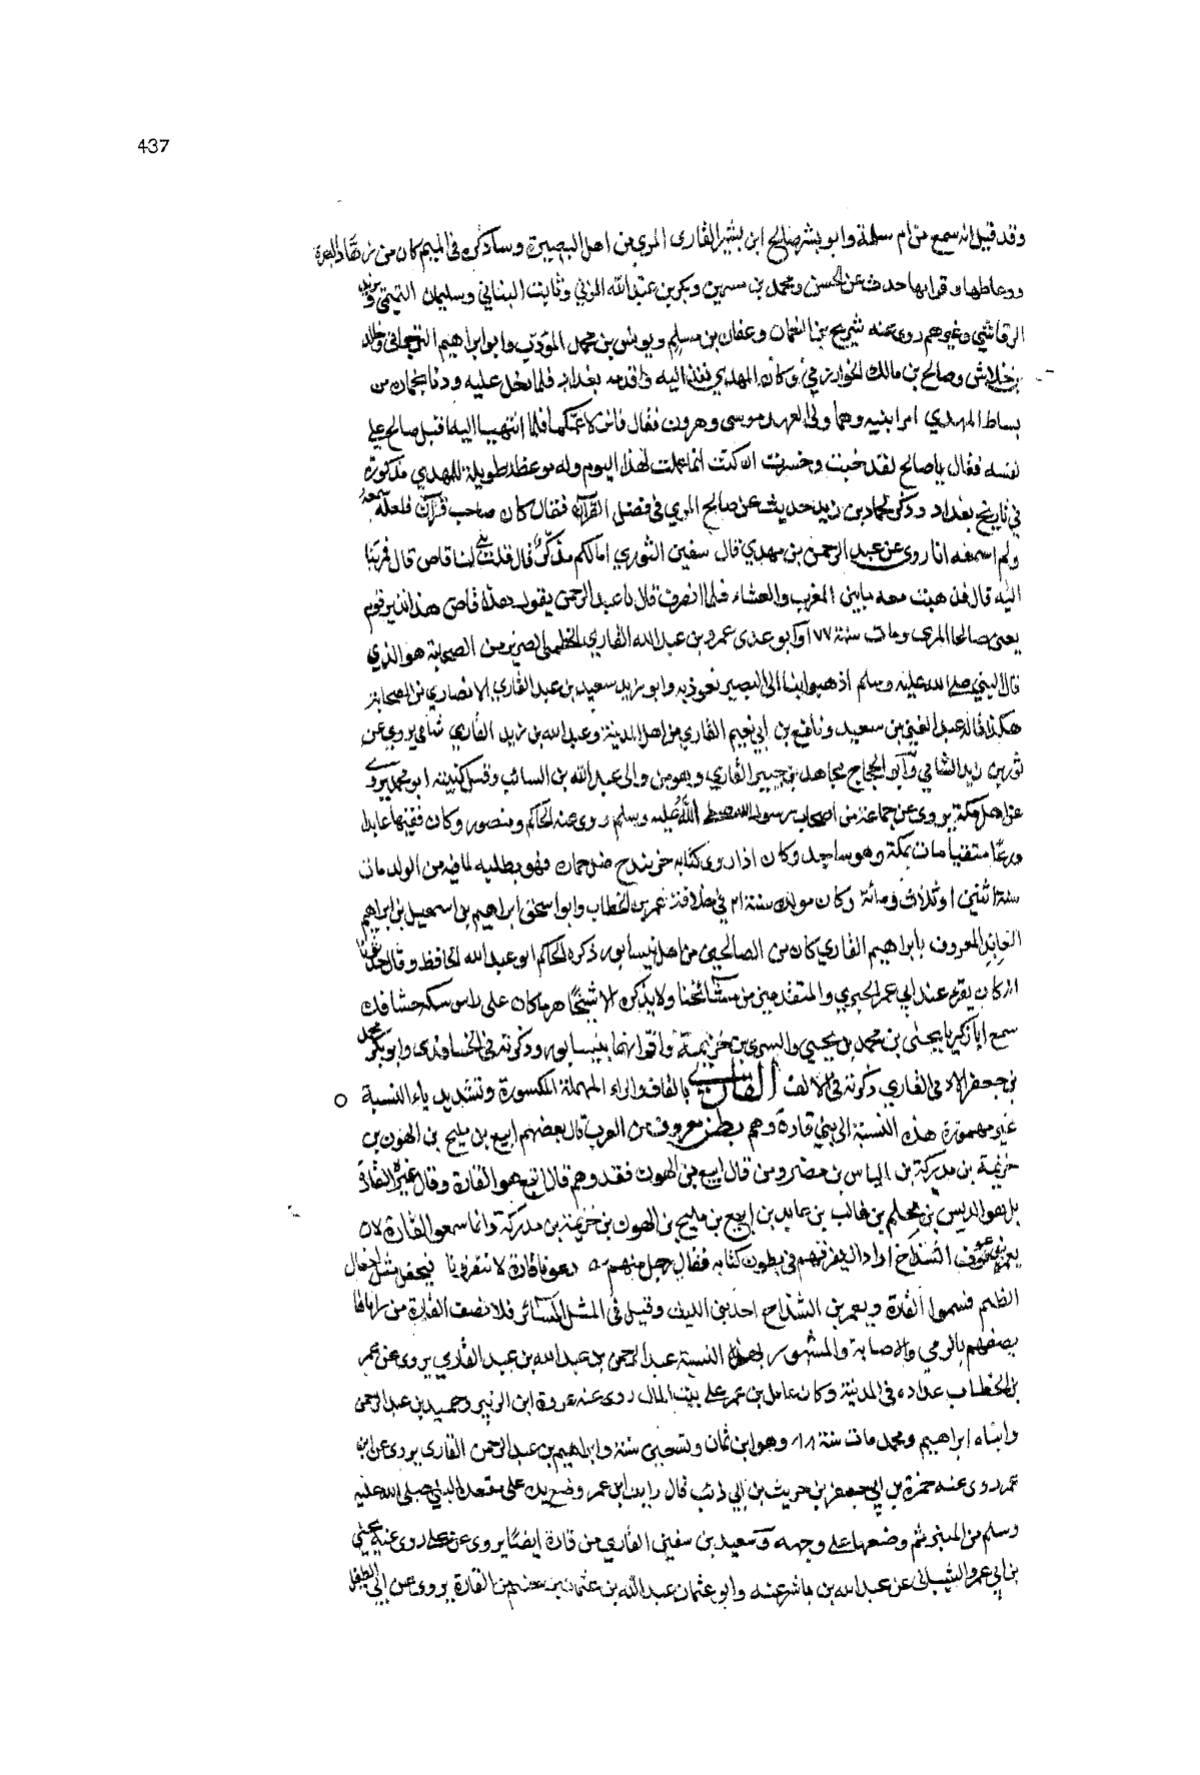 437
وقد قيل انه سمع من ام سلمة وابو بشر صالح ابن بشير القارى المري من اهل البصرة وسأذكره في الميم كان من
ووعاظها وقرايها حدث عن الحسن ومحمد بن سيرين وبكر بن عبد الله المزني وثابت البناني وسليمان التيمي ويزيد
الرقاشي وغيرهم روى عنه شريح بن النعمان وعفان بن مسلم ويونس بن محمد المؤدب وابو ابراهيم الترجماني وخالد
بن خداش وصالح بن مالك الخوارزمي وكان المهدي نفذ اليه واقدمه بغداد فلما دخل عليه ودنا بحماره من
بساط المهدي امر ابنيه وهما وليا العهد موسى وهرون فقال قوما فانزلا عمكما فلما انتهيا اليه اقبل صالح على
نفسه فقال يا صالح لقد خبت وخسرت ان كنت انما عملت لهذا اليوم وله موعظة طويلة للمهدي مذكورة
في تاريخ بغداد وذكر لحماد بن زيد حديث عن صالح المري في فضل القرآن فقال كان صاحب قرآن فلعله سمعه
ولم اسمعه انا روى عن عبد الرحمن بن مهدي قال سفين الثوري اما لكم مذكر قال قلت بلى لنا قاص قال فمر بنا
اليه قال فذهبت معه مابين المغرب والعشاء فلما انصرف قال يا عبد الرحمن يقول هذا قاص هذا نذير قوم
يعني صالحا المري ومات سنة ١٧٧ وابو عدى عمرو بن عبد الله القاري الخطمي الضرير من الصحابة هو الذي
قال النبي صلى الله عليه وسلم اذهبوا بنا الى البصير نعوده وابو زيد سعيد بن عبد القاري الانصاري من الصحابة
هكذا قاله عبد الغني بن سعيد ونافع بن ابي نعيم القاري من اهل المدينة وعبد الله بن يزيد القاري شامي يروي عن
ثور بن زيد الشامي وابو الحجاج مجاهد بن جبير القاري وهو من والى عبد الله بن السائب وقيل كنيته ابو محمد يروي
عن اهل مكة يروى عن جماعة من اصحاب رسول الله صلى الله عليه وسلم روى عنه الحاكم ومنصور وكان فقيها عابدا
ورعا متقنيا مات بمكة وهو ساجد وكان اذا روى كتابه
سنة اثنتين او ثلاث ومائة وكان مولده سنة ٢١ في خلافة عمر بن الخطاب وابو اسحق ابراهيم بن اسمعيل بن ابراهيم
العابد المعروف بابراهيم القاري كان من الصالحين من اهل نيسابور ذكره الحاكم ابو عبد الله الحافظ وقال
انه كان يقرء عند ابي عمر الحيري والمتقدمين من مشائخنا ولا يذكره الا شيخا هرما كان على راس سكة
سمع ابا زكريا يحيى بن محمد بن يحيى والسري بن خزيمة واقرانهما بنيسابور وذكرته في الخساوندى وابو بكر محمد
بن جعفر القاري ذكرته في الالف القاري بالقاف والراء المهملة المكسورة وتشديد ياء النسبة
غير مهموزة هذه النسبة الى بني قارة وهم بطن معروف من العرب قال بعضهم اييع بن مليح بن الهون بن
خزيمة بن مدركة بن الياس بن مضر ومن قال اييع بن الهون فقد وهم قال اييع هو القارة وقال غيره القارة
بل هو الديس بن محلم بن غالب بن عايد بن اييع بن مليح بن الهون بن خزيمة بن مدركة وانما سموا القارة لان
يعمر بن عوف الشداخ اراد ان يفرقهم في بطون كنانه فقال رجل منهم دعونا قارة لا تنفرونا فنجفل مثل اجفال
الظليم فسموا القارة ويعمر بن الشداخ احد بني الليث وقيل في المثل السائر قد انصف القارة من راماها
يصفهم بالرمي والاصابة والمشهور بهذه النسبة عبد الرحمن بن عبد الله بن عبد القاري يروى عن عمر
بن الخطاب عداده في المدينة وكان عامل بن عمر على بيت المال روى عنه عروة ابن الزبير وحميد بن عبد الرحمن
وابناه ابراهيم ومحمد مات سنة ٨٨ وهو ابن ثمان وتسعين سنة وابراهيم بن عبد الرحمن القارى يروى عن ابن
عمر روى عنه حمزة بن ابي جعفر بن حريث بن ابي ذئب قال رايت ابن عمر وضع يده على مقعد النبي صلى الله عليه
وسلم من المنبر ثم وضعها على وجهه وسعيد بن سفين القاري من قارة ايضا يروى عن علي روى عنه يحيى
بن ابي عمرو الشيباني عن عبد الله بن ناشر عنه وابو عثمان عبد الله بن عثمان بن خثيم من القارة يروى عن ابي الطفيل